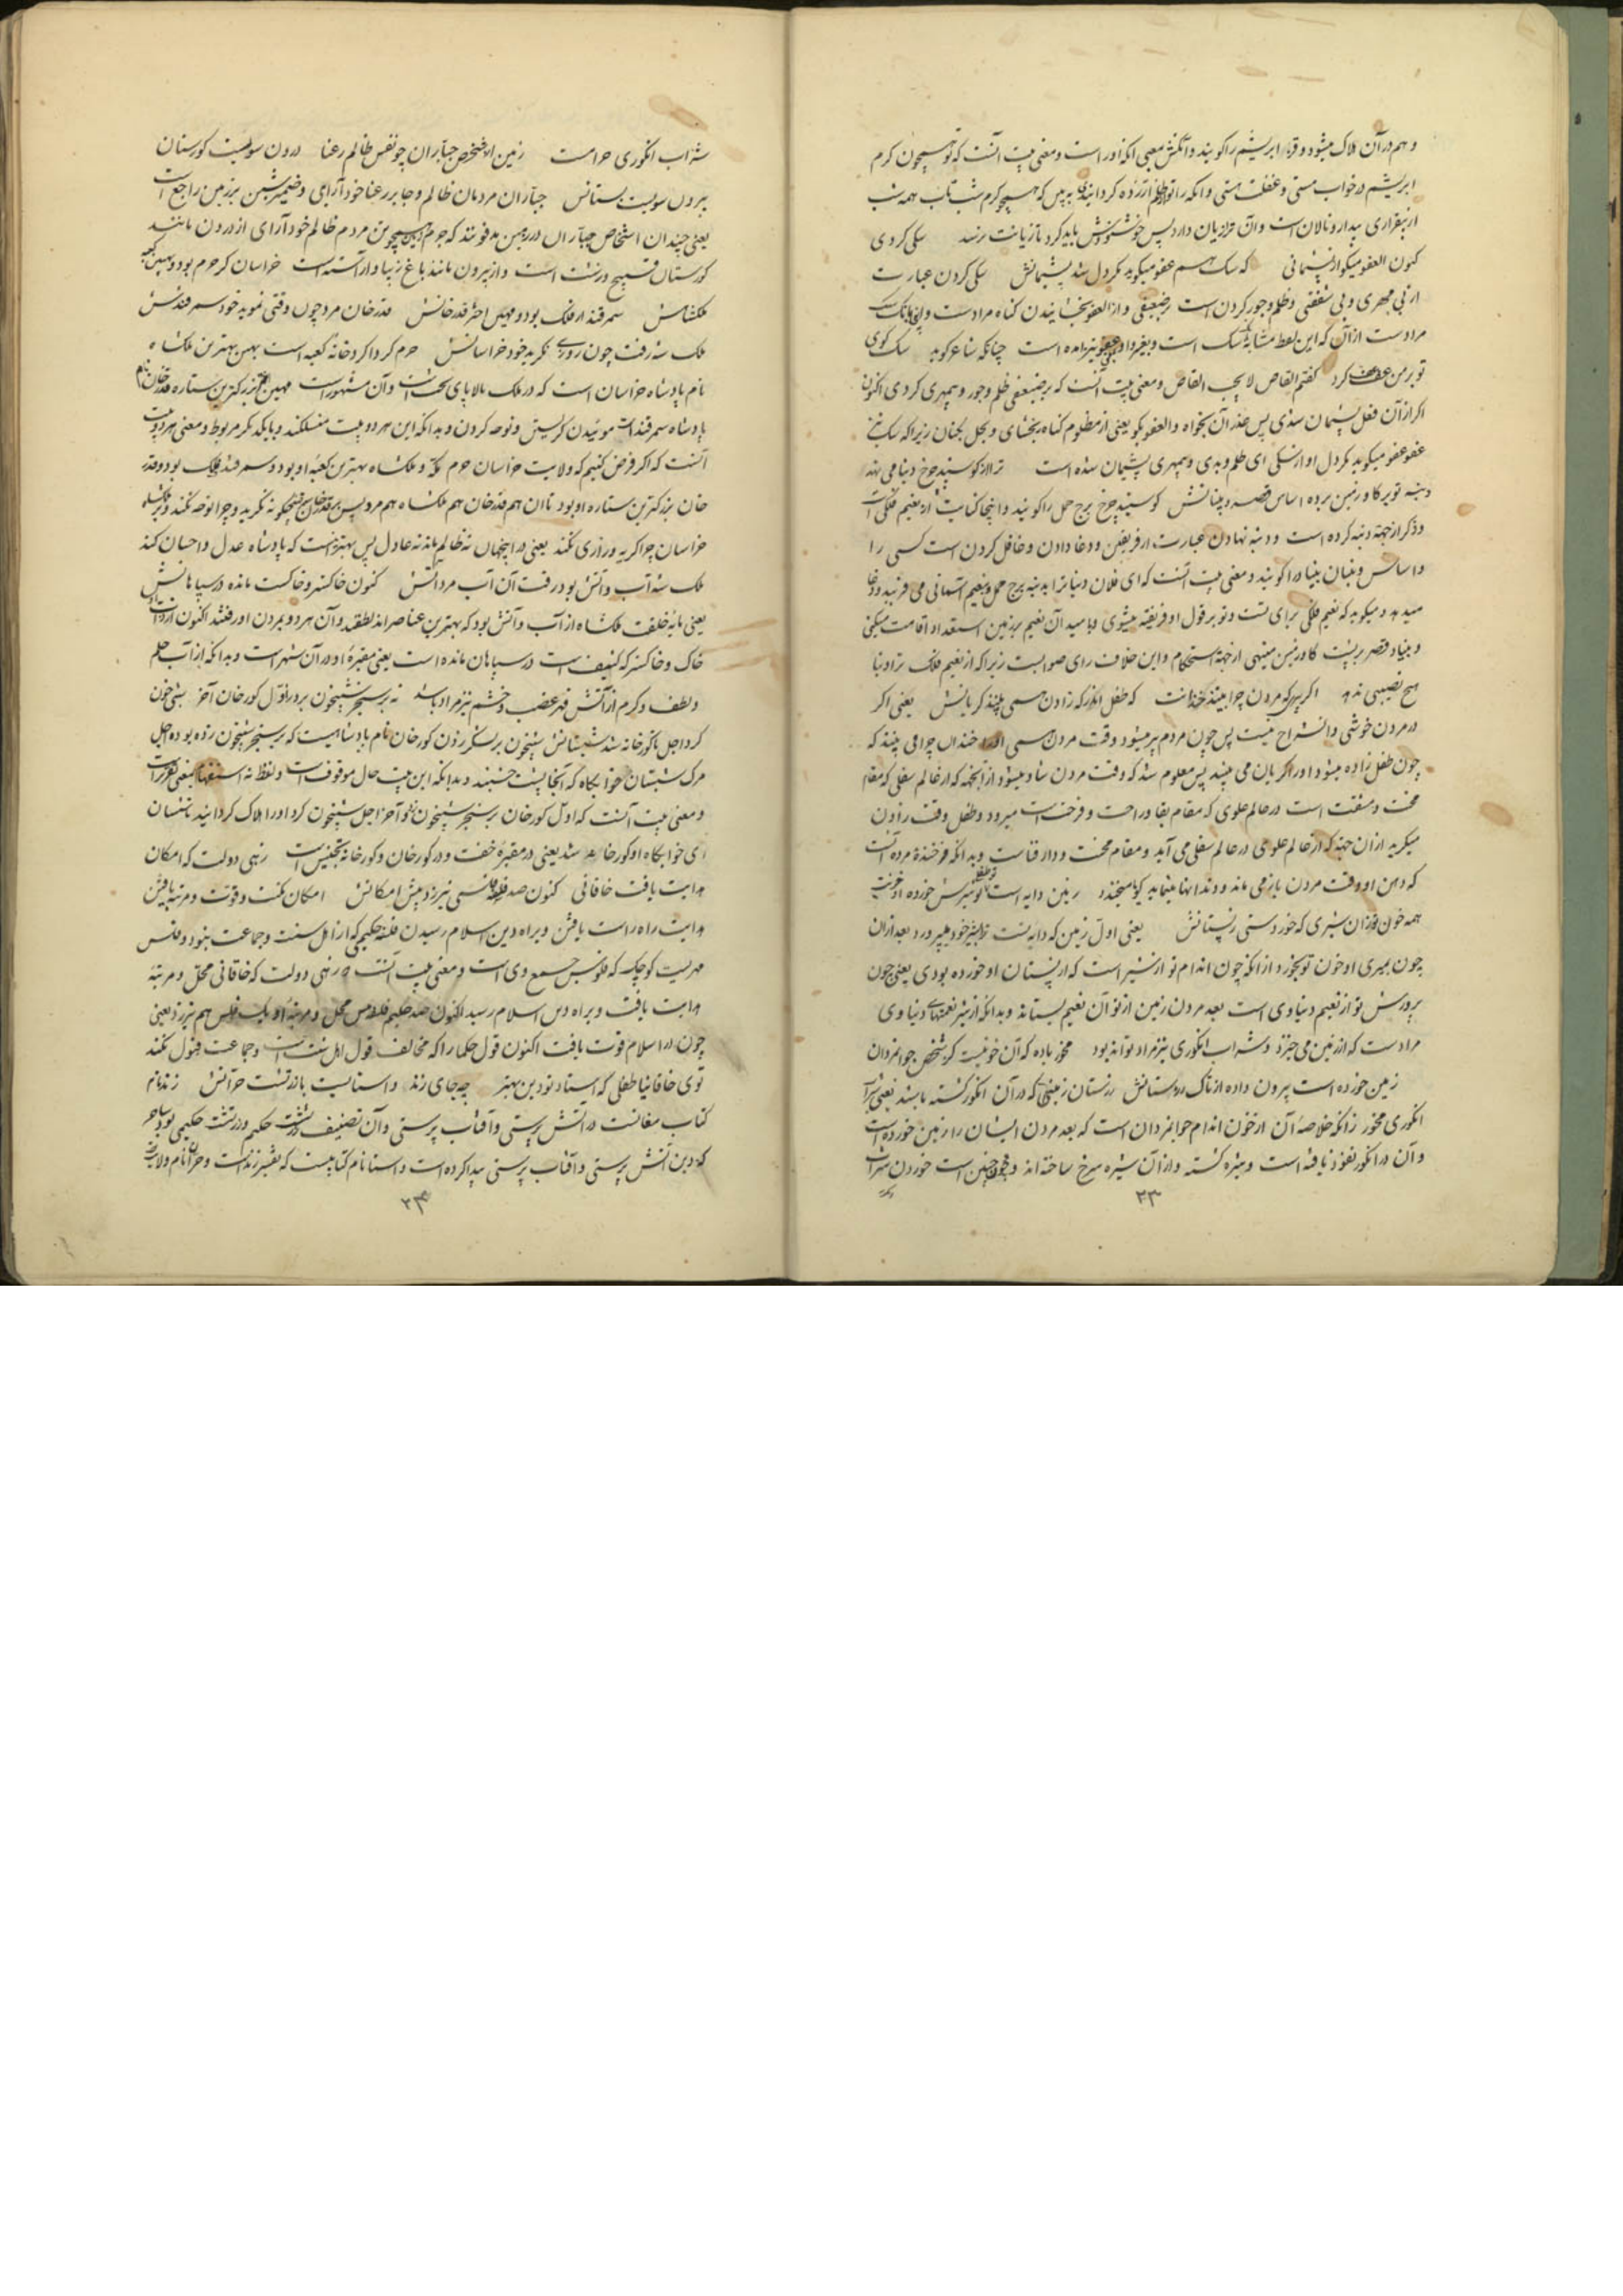 و هم در آن هلاک میشود و قز ابریشم را گویند و معنی بیت آنست که تو همچون کرم
ابریشم در خواب مستی و غفلت هستی و آنکه را تو از ظلم آزرده گردانیدی بترس که همچو کرم شب تاب همه شب
از بیقراری بیدار و نالان است و آن ترا زیان دارد پس خوشنودش باید کرد تا زیانت نرسد سگی کردی
کنون العفو میگو از پشیمانی که سگ هم عفو میگوید مگر دل شد پشیمانش سگی کردن عبارت
از بی مهری و بی شفقتی و ظلم و جور کردن است بر ضعیفی و از العفو بخشانیدن گناه مرادست
مرادست از آن که این لفظ مشابه سگ است چنانکه شاعر گوید سگ کوی
تو بر من عف عف کرد گفتم القاص لا یحب القاص و معنی بیت آنست که بر ضعیفی ظلم و جور و بیمهری کردی اکنون
اگر از آن فعل پشیمان شدی پس عذر آن بخواه و العفو بگو یعنی از مظلوم گناه بخشای و بحل بکنان زیرا که سگ نیز
عفو عفو میگوید مگر دل او از سگی ای ظلم و بدی و بیمهری پشیمان شده است ترا از گوسپند چرخ دنیا می نهد
دنبه تو بر گاو زمین برده اساس قصر و بنیانش گوسپند چرخ برج حمل را گویند و اینجا کنایت از نعیم فلکی است
و ذکر از جهة دنبه کرده است و دنبه نهادن عبارت از فریفتن و دغا دادن و غافل کردن است کسی را
و اساس و بنیان بنیاد را گویند و معنی بیت آنست که ای فلان دنیا ترا به دنبه برج حمل و نعیم آسمانی می فریبد و دغا
میدهد و میگوید که نعیم فلکی برای تست و تو بر قول او فریفته میشوی و بامید آن نعیم بر زمین استعداد اقامت میکنی
و بنیاد قصر بر پشت گاو زمین مینهی از جهة استحکام و این خلاف رای صوابست زیرا که از نعیم فلک ترا دنیا
هیچ نصیبی ندهد اگر پیری که مردن چرا بیند خندانت که طفل آنگه که زادن همی بیند گریانش یعنی اگر
در مردن خوشی و انشراح نیست پس چون مردم پیر میشود وقت مردن همی او را خندان چرا می بینند که
چون طفل زاده میشود او را گریان می بینند پس معلوم شد که وقت مردن شاد میشود از آنجهة که از عالم سفلی که مقام
محنت و مشقت است در عالم علوی که مقام بقا و راحت و فرحت است میرود و طفل وقت زادن
میگرید از آن جهة که از عالم علوی در عالم سفلی می آید و مقام محنت و دار فناست و بدانکه فرخندهٔ مرده آنست
که دهن او وقت مردن باز می ماند و دندانها مینماید گویا میخندد زمین دایه است تو طفلی تو شیرش خورده او خونت
همه خون تو زان شیری که خوردستی ز پستانش یعنی اول زمین که دایه تست ترا بشیر خود میپرورد بعد از آن
چون بمیری او خون تو بخورد از آنکه چون اندام تو از شیر است که از پستان او خورده بودی یعنی چون
پرورش تو از نعیم دنیاوی است بعد مردن زمین از تو آن نعیم بستاند و بدانکه از شیر نعمتهای دنیاوی
مرادست که از زمین می خیزد و شراب انگوری نیز مراد تواند بود مخور باده که آن خونیست کز شخص جوانمردان
زمین خورده است بیرون داده از تاک رزستانش رزستان زمینی که در آن انگور کشته باشند یعنی شراب
انگوری مخور زانکه خلاصهٔ آن از خون اندام جوانمردان است که بعد مردن ایشان را زمین خورده است
و آن در انگور نفوذ یافته است و شیره گشته و از آن شیره سرخ ساخته اند و چون چنین است خوردن شراب
۲۳
شراب انگوری حرامست زمین از شخص جباران چو نفس ظالم رعنا درون سو هست گورستان
بیرون سو هست بستانش جباران مردمان ظالم و جابر رعنا خودآرای و ضمیر شین بر زمین راجع است
یعنی چندان اشخاص جباران در زمین مدفونند که جرم زمین همچون مردم ظالم خودآرای از درون مانند
گورستان قبیح و زشت است و از بیرون مانند باغ زیبا و آراسته است خراسان گر حرم بود و بهین کعبه
ملکشاهش سمرقند ار فلک بود و مهین اختر قدرخانش قدرخان مرد چون وقتی نموید خود سمرقندش
ملک شه رفت چون روزی نگرید خود خراسانش حرم گرداگرد خانهٔ کعبه است بهین بهترین ملکشاه
نام پادشاه خراسان است و آن مشهور است مهین بزرگترین ستاره قدرخان نام
پادشاه سمرقند است موئیدن گریستن و نوحه کردن و بدانکه این هر دو بیت منسلکند و بایکدیگر مربوط و معنی هر دو بیت
آنست که اگر فرض کنیم که ولایت خراسان حرم مکه و ملکشاه بهترین کعبه او بود و سمرقند فلک بود و قدر
خان بزرگترین ستاره او بود تا آن هم قدرخان هم ملکشاه هم مرد پس سمرقند بر قدرخان چگونه نگرید و چرا نوحه نکند و بر ملکشاه
خراسان چرا گریه و زاری نکند یعنی در اینجهان نه ظالم ماند نه عادل پس بهتر آنست که پادشاه عدل و احسان کند
ملک شه آب و آتش بود رفت آن آب مرد آتش کنون خاکستر و خاکست مانده در سپاهانش
یعنی مایهٔ خلقت ملکشاه از آب و آتش بود که بهترین عناصر اند لطیف اند و آن هر دو بمردن او رفتند اکنون از ذات او
خاک و خاکستر که کثیف است در سپاهان مانده است یعنی مقبرهٔ او در آن شهر است و بدانکه از آب حلم
و لطف و کرم و از آتش قهر غضب و خشم نیز مراد باشد نه بر سنجر شبیخون برد اول گورخان آخر شبیخون
کرد اجل تا گورخانه شد شبستانش شبیخون بر لشکر زدن گورخان نام پادشاهیست که بر سنجر شبیخون زده بود و اجل
مرگ شبستان خوابگاه که آنجا بشب خسبند و بدانکه این بیت حال موقوف است و لفظ نه استفهام بمعنی تقریر است
و معنی بیت آنست که اول گورخان بر سنجر شبیخون زد و آخر اجل شبیخون کرد و او را هلاک گردانید تا شبستان
ای خوابگاه او گورخانه شد یعنی در مقبره خفت و در گورخان و گورخانه تجنیس است زهی دولت که امکان
هدایت یافت خاقانی کنون صد فلسفی فلسی نیرزد پیش امکانش امکان مکنت و قوت و مرتبه یافتن
هدایت راه راست یافتن و براه دین اسلام رسیدن فلسفه حکیمی که از اهل سنت و جماعت نبود و فلس
مهریست کوچک که فلوس جمع وی است و معنی بیت آنست که زهی دولت که خاقانی محل و مرتبهٔ
هدایت یافت و براه دین اسلام رسید اکنون صد حکیم فلسفی پیش محل و مرتبهٔ او یک فلس هم نیرزد یعنی
چون در اسلام قوت یافت اکنون قول حکما را که مخالف قول اهل سنت است و جماعت قبول نکند
توی خاقانیا طفلی که استاد تو دین بهتر چه جای زند و استا هست با زردشت حرانش زند نام
کتاب مغانست در آتش پرستی و آفتاب پرستی و آن تصنیف زردشت حکیم و زردشت حکیمی بود ساحر
که دین آتش پرستی و آفتاب پرستی پیدا کرده است و استا نام کتابیست که تفسیر زند است و حران نام ولایت
۲۴